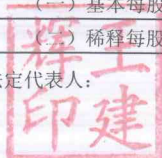 （一）基本每股
（二）稀释每股
定代表人：
王建
辉印